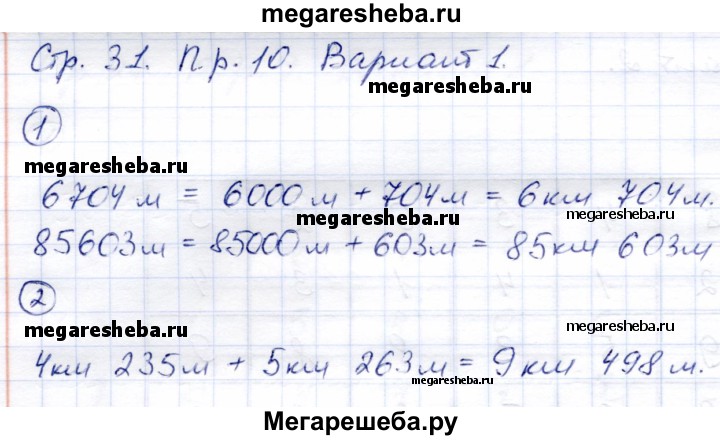 megaresheba.ru
Стр. 31. П.р. 10. Вариант 1.
megaresheba.ru
1
megaresheba.ru
6704м = 6000м + 704м = 6км 704м.
megaresheba.ru megaresheba.ru
85603м = 85000м + 603м = 85км 603м
2
megaresheba.ru megaresheba.ru
4км 235м + 5км 263м = 9км 498м.
megaresheba.ru
Мегарешеба.ру